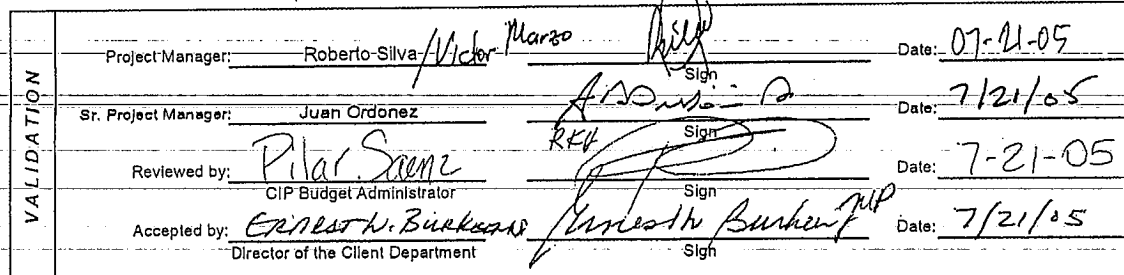 VALIDATION
Project Manager: Roberto Silva /Victor Marzo Date: 07-21-05
Sign
Sr. Project Manager: Juan Ordonez Date: 7/21/05
RKH Sign
Reviewed by: Pilar Saenz Date: 7-21-05
CIP Budget Administrator Sign
Accepted by: Ernest W. Date: 7/21/05
Director of the Client Department Sign